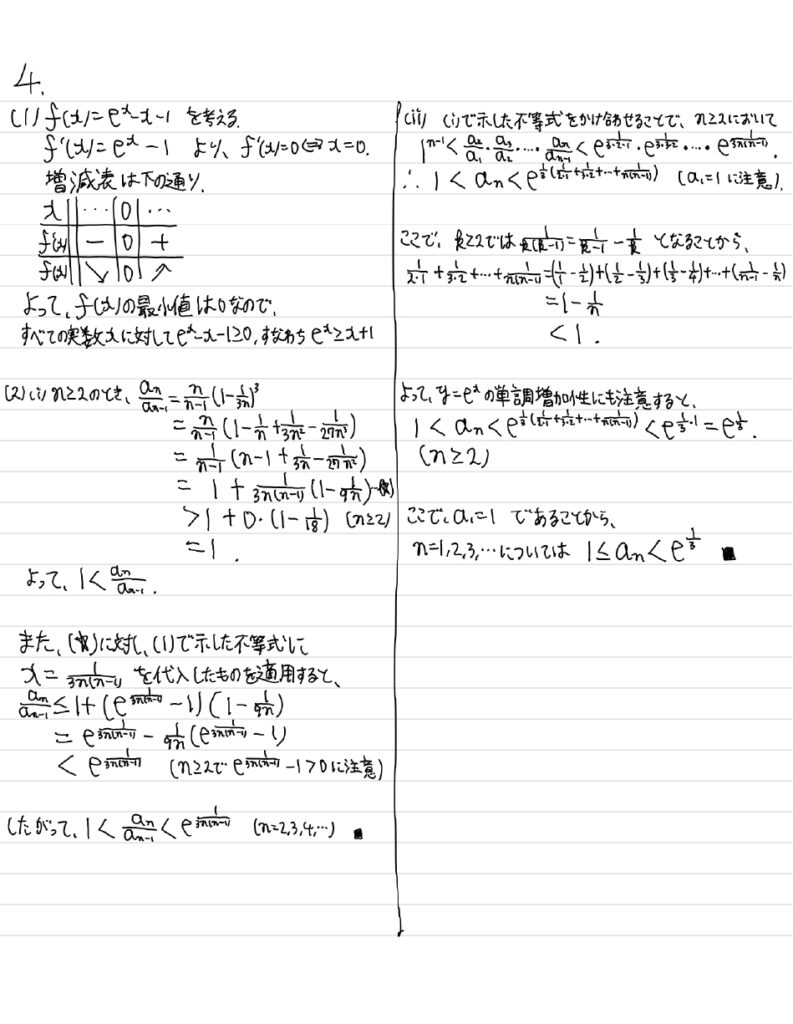 4.
(1) f(x)=e^x-x-1 を考える.
f'(x)=e^x-1 より、f'(x)=0⇔x=0.
増減表は下の通り.
x | … | 0 | …
f'(x) | - | 0 | +
f(x) | ↘ | 0 | ↗
よって、f(x)の最小値は0なので、
すべての実数xに対してe^x-x-1≥0, すなわち e^x≥x+1
(2) (i) n≥2のとき、a_n/a_{n-1} = n/(n-1) (1-1/(3n))^3
= n/(n-1) (1-1/n+1/(3n^2)-1/(27n^3))
= 1/(n-1) (n-1+1/(3n)-1/(27n^2))
= 1+1/(3n(n-1)) (1-1/(9n)) …(※)
>1+0・(1-1/18) (n≥2)
=1.
よって、1<a_n/a_{n-1}.
また、(※)に対し、(1)で示した不等式に
x=1/(3n(n-1)) を代入したものを適用すると、
a_n/a_{n-1} ≤ 1+(e^{1/(3n(n-1))}-1)(1-1/(9n))
= e^{1/(3n(n-1))}-1/(9n) (e^{1/(3n(n-1))}-1)
< e^{1/(3n(n-1))} (n≥2で e^{1/(3n(n-1))}-1>0に注意)
したがって、1<a_n/a_{n-1}<e^{1/(3n(n-1))} (n=2,3,4,…) ■
(ii) (i)で示した不等式をかけ合わせることで、n≥2において
1^{n-1}<a_2/a_1・a_3/a_2・…・a_n/a_{n-1}<e^{1/(3・2・1)}・e^{1/(3・3・2)}・…・e^{1/(3n(n-1))}.
∴ 1<a_n<e^{1/3(1/(2・1)+1/(3・2)+…+1/(n(n-1)))} (a_1=1に注意).
ここで、k≥2では 1/(k(k-1))=1/(k-1)-1/k となることから、
1/(2・1)+1/(3・2)+…+1/(n(n-1))=(1/1-1/2)+(1/2-1/3)+(1/3-1/4)+…+(1/(n-1)-1/n)
=1-1/n
<1.
よって、y=e^xの単調増加性にも注意すると、
1<a_n<e^{1/3(1/(2・1)+1/(3・2)+…+1/(n(n-1)))}<e^{1/3・1}=e^{1/3}.
(n≥2)
ここで、a_1=1 であることから、
n=1,2,3,…については 1≤a_n<e^{1/3} ■